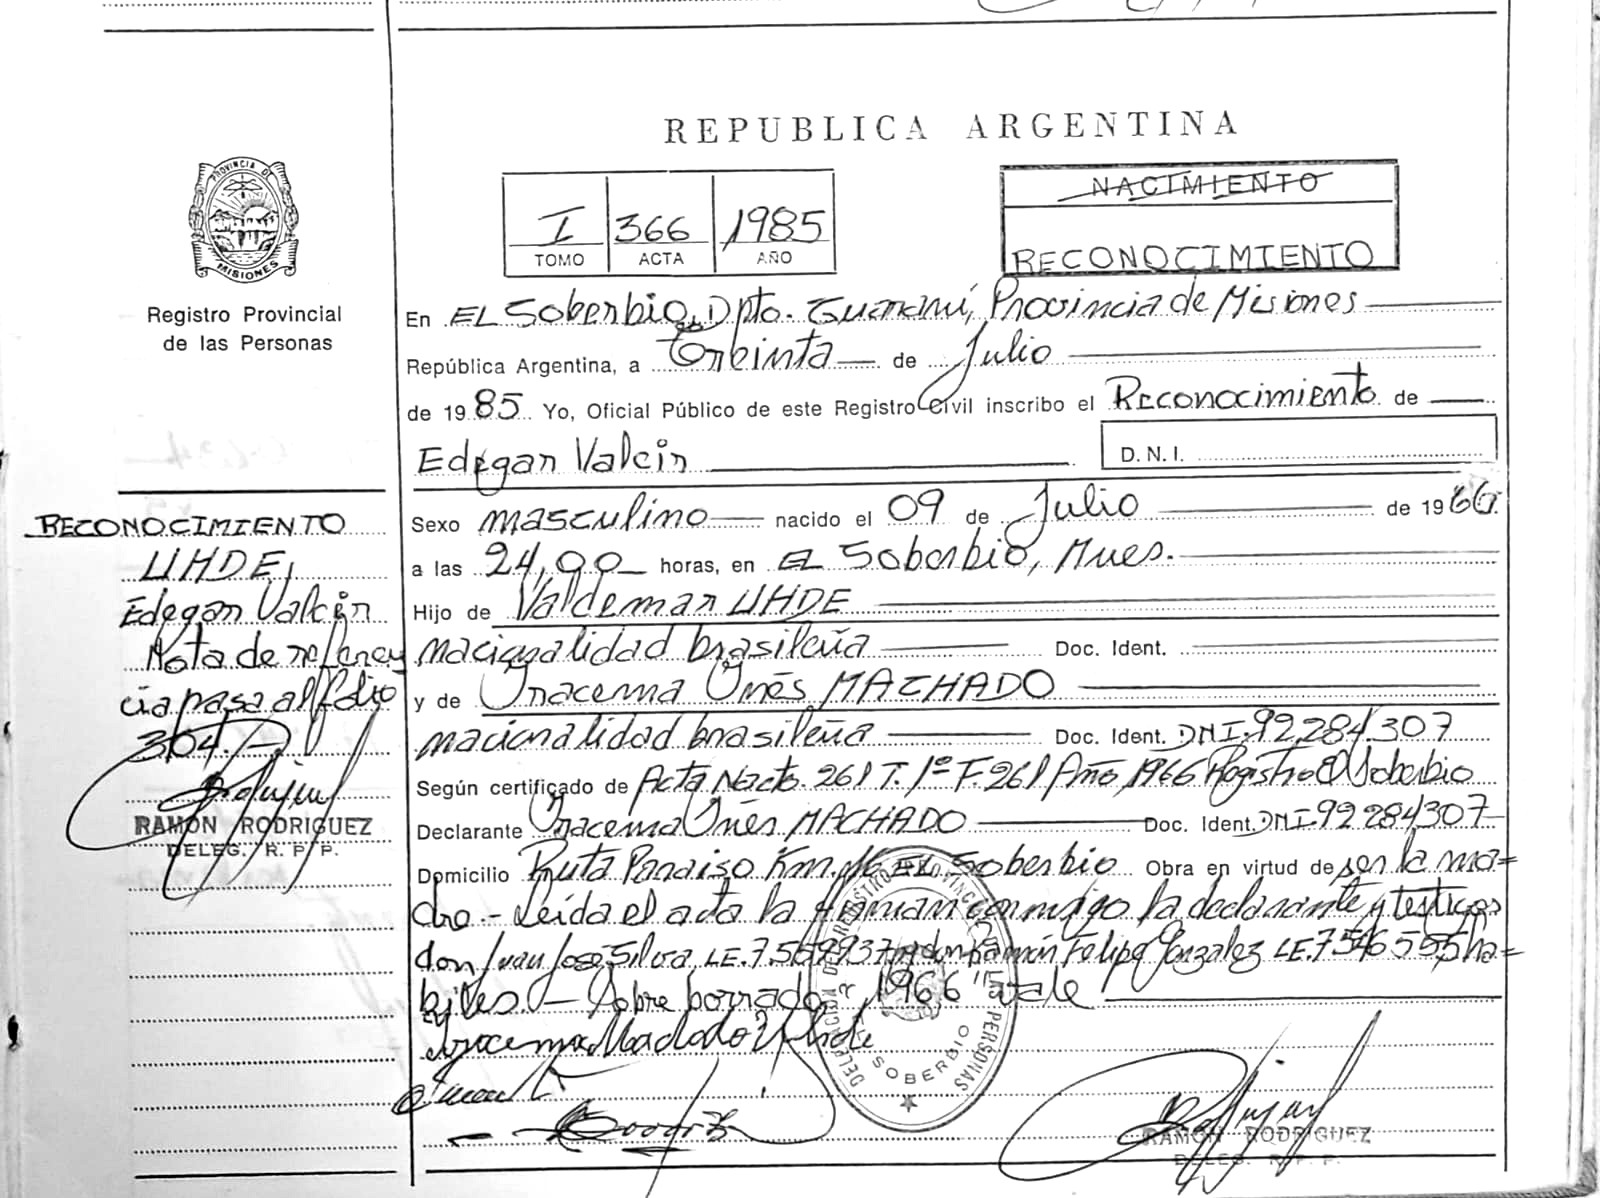 REPUBLICA ARGENTINA
PROVINCIA DE MISIONES
Registro Provincial
de las Personas
I 366 1985
TOMO ACTA AÑO
NACIMIENTO
RECONOCIMIENTO
En EL Soberbio, Dpto. Guaraní, Provincia de Misiones
República Argentina, a Treinta de Julio
de 1985 Yo, Oficial Público de este Registro Civil inscribo el Reconocimiento de
Edegar Valcir
D.N.I.
Sexo masculino nacido el 09 de Julio de 1966
a las 24,00 horas, en EL Soberbio, Mnes.
Hijo de Valdemar UHDE
nacionalidad brasileña Doc. Ident.
y de Iracema Inés MACHADO
nacionalidad brasileña Doc. Ident. DNI.92.284.307
Según certificado de Acta Nacto. 261 T. 1º F. 261 Año 1966 Registro El Soberbio
Declarante Iracema Inés MACHADO Doc. Ident. DNI.92284307
Domicilio Ruta Paraiso Km. EL Soberbio Obra en virtud de ser la ma=
dre.- Leída el acta la firman conmigo la declarante y testigos
don Juan José Silva LE.7.569937 y don Ramón Felipe Gonzalez LE.7546555 ha=
biles.- Sobre borrado "1966" vale
Iracema Machado Uhde
RECONOCIMIENTO
UHDE,
Edegar Valcir
Nota de referen
cia pasa al folio
304.
RAMON RODRIGUEZ
DELEG. R. P. P.
DELEGACION DEL REGISTRO PROVINCIAL DE LAS PERSONAS
SOBERBIO
RAMON RODRIGUEZ
DELEG. R. P. P.